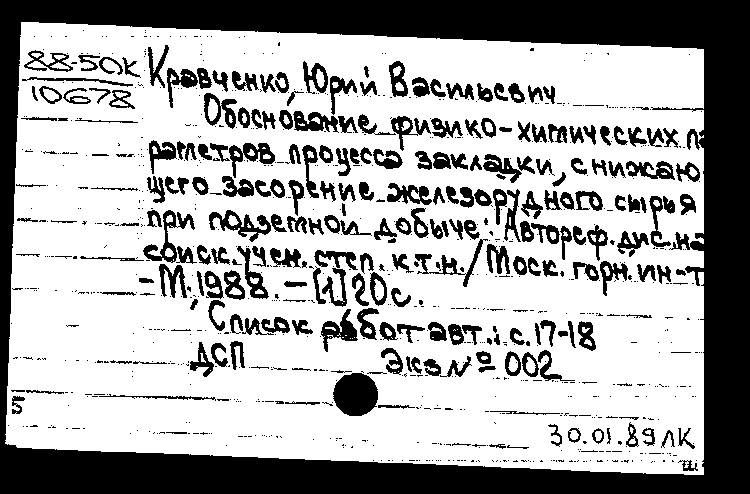 88-50К
10678
Кравченко, Юрий Васильевич
Обоснование физико-химических па
раметров процесса закладки, снижаю-
щего засорение железорудного сырья
при подземной добыче: Автореф. дис. на
соиск. учен. степ. к.т.н. / Моск. горн. ин-т
- М. 1988. - [1] 20 с.
Список работ авт.: с. 17-18
ДСП Экз № 002
5
30.01.89 ЛК